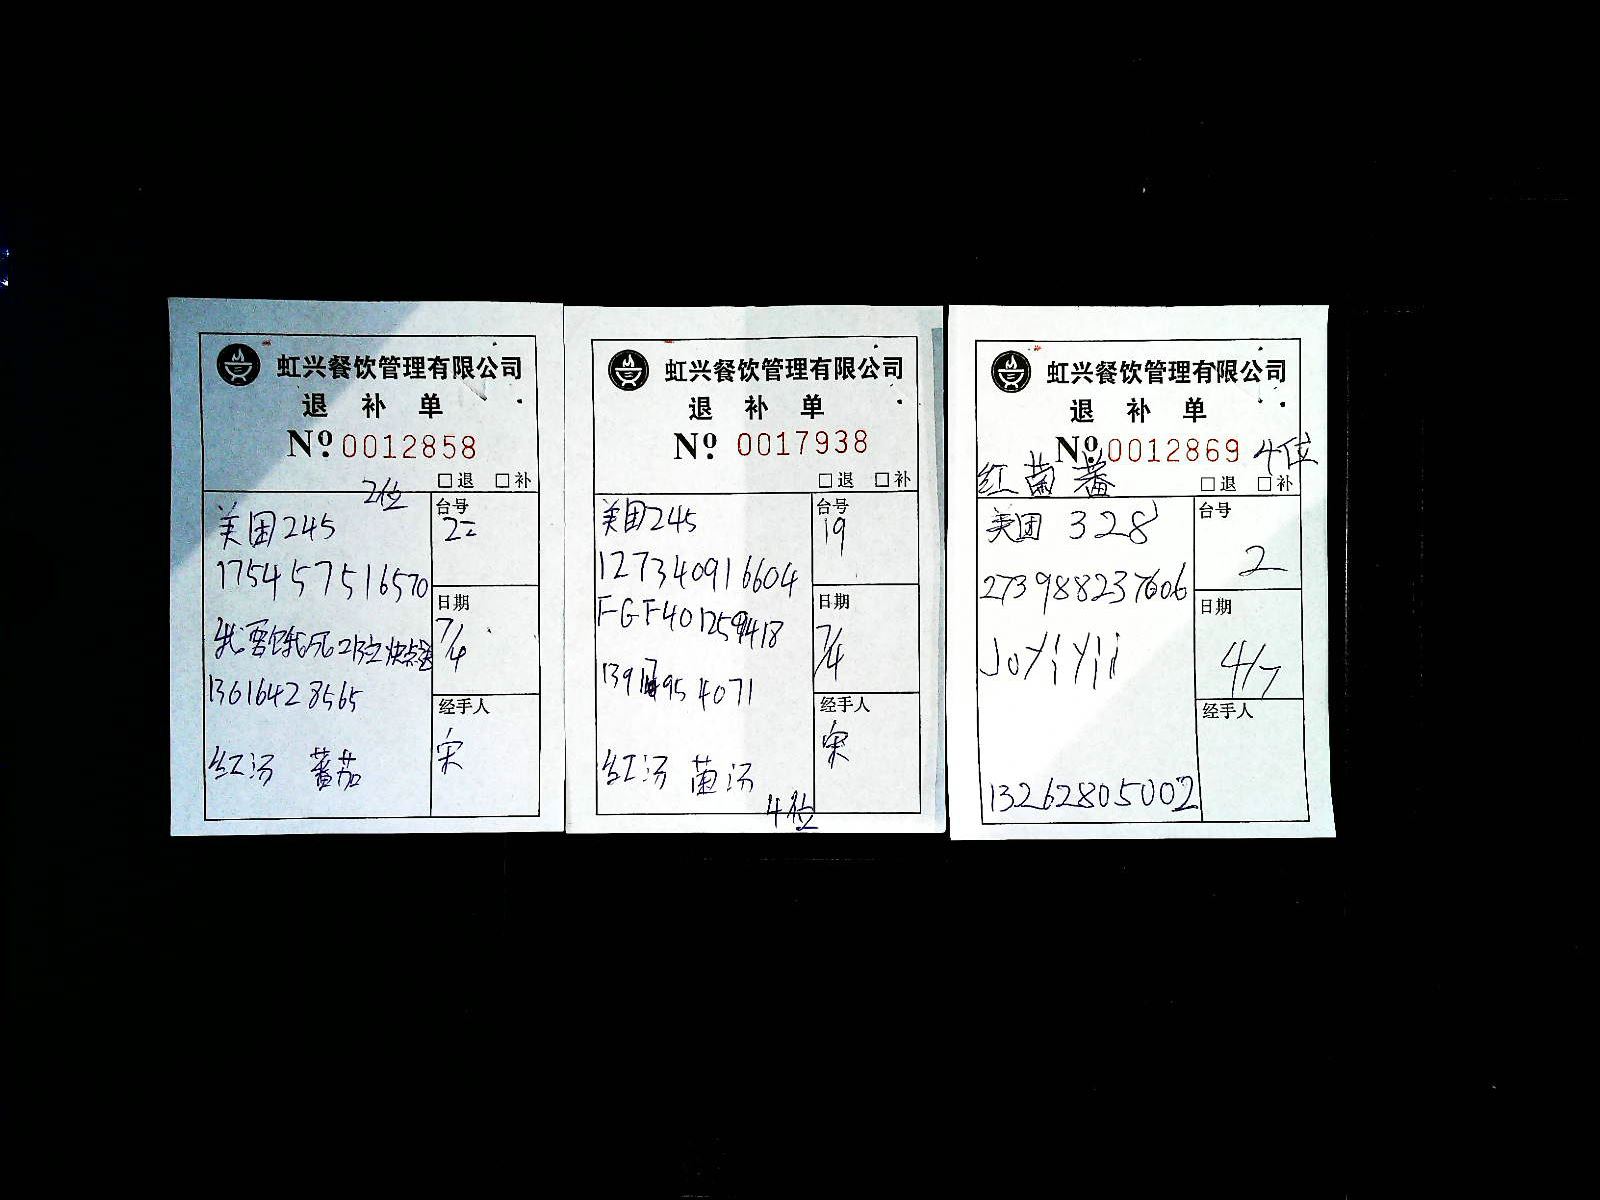 虹兴餐饮管理有限公司
退 补 单
Nº 0012858
□退 □补
2位
美团245
台号
22
175457516570
日期
7/4
13616428565
经手人
宋
红汤 蕃茄
虹兴餐饮管理有限公司
退 补 单
Nº 0017938
□退 □补
美团245
台号
19
127340916604
日期
7/4
4071
经手人
宋
红汤 菌汤
4位
虹兴餐饮管理有限公司
退 补 单
Nº 0012869 4位
红 菌 蕃
□退 □补
美团 328
台号
2
273988237606
日期
4/7
JoYiYii
经手人
13262805002